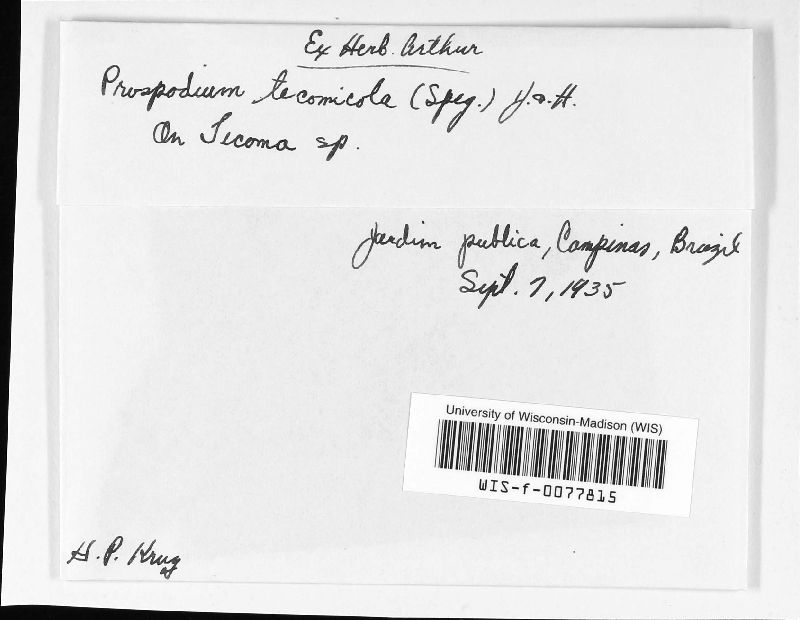 Ex Herb. Arthur
Prospodium tecomicola (Speg.) J. & H.
On Tecoma sp.
Jardim publica, Campinas, Brazil
Sept. 7, 1935
University of Wisconsin-Madison (WIS)
WIS-f-0077815
H. P. Krug